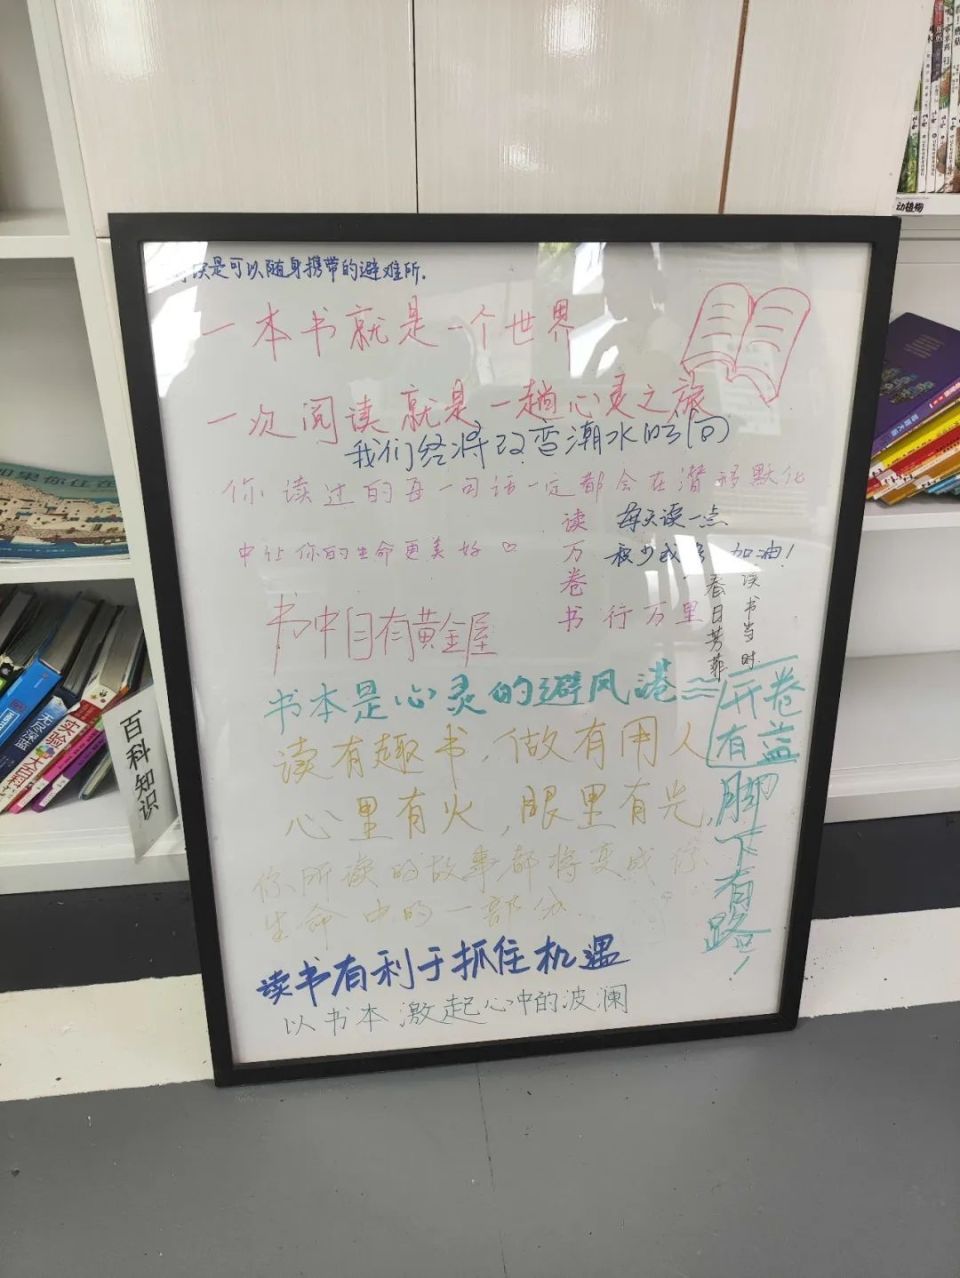 动植物
阅读是可以随身携带的避难所.
一本书就是一个世界
一次阅读就是一趟心灵之旅
我们终将改变潮水的方向
你读过的每一句话一定都会在潜移默化
中让你的生命更美好
读万卷书 行万里
每天读一点
加油!
读书当时
春日芳菲
书中自有黄金屋
书本是心灵的避风港
开卷
有益
读有趣书,做有用人
心里有火,眼里有光,
脚下有路!
你所读的故事都将变成你
生命中的一部分.
读书有利于抓住机遇
以书本激起心中的波澜
如果你住在
百科知识